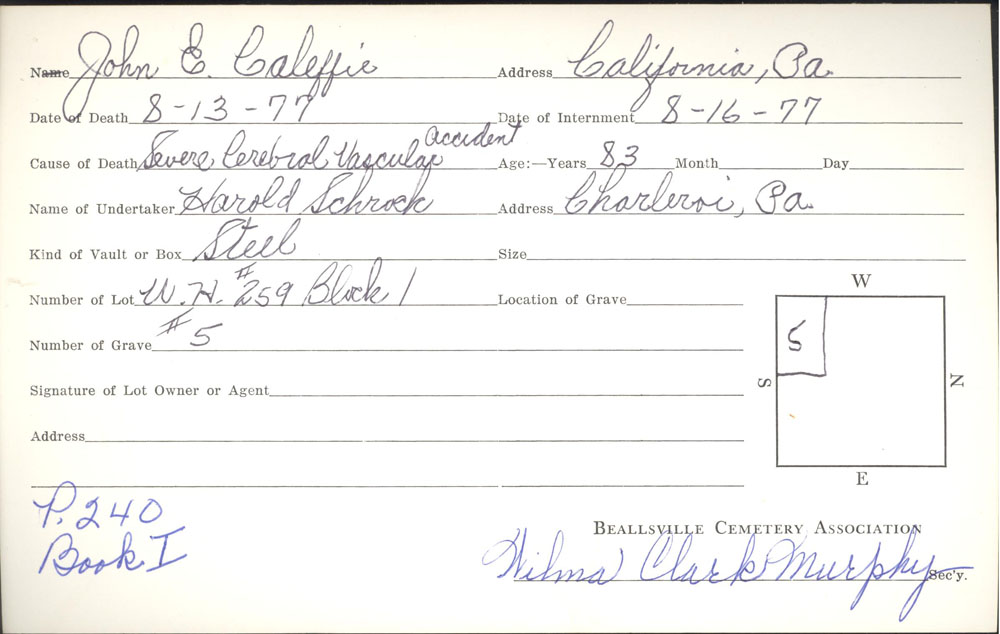 Name John E. Caleffie Address California, Pa.
Date of Death 8-13-77 Date of Internment 8-16-77
Cause of Death Severe Cerebral Vascular accident Age:—Years 83 Month Day
Name of Undertaker Harold Schrock Address Charleroi, Pa.
Kind of Vault or Box Steel Size
Number of Lot W.H. #259 Block 1 Location of Grave
W
Number of Grave #5
5
S N
Signature of Lot Owner or Agent
Address
E
P. 240
Book I
BEALLSVILLE CEMETERY ASSOCIATION
Wilma Clark Murphy Sec'y.